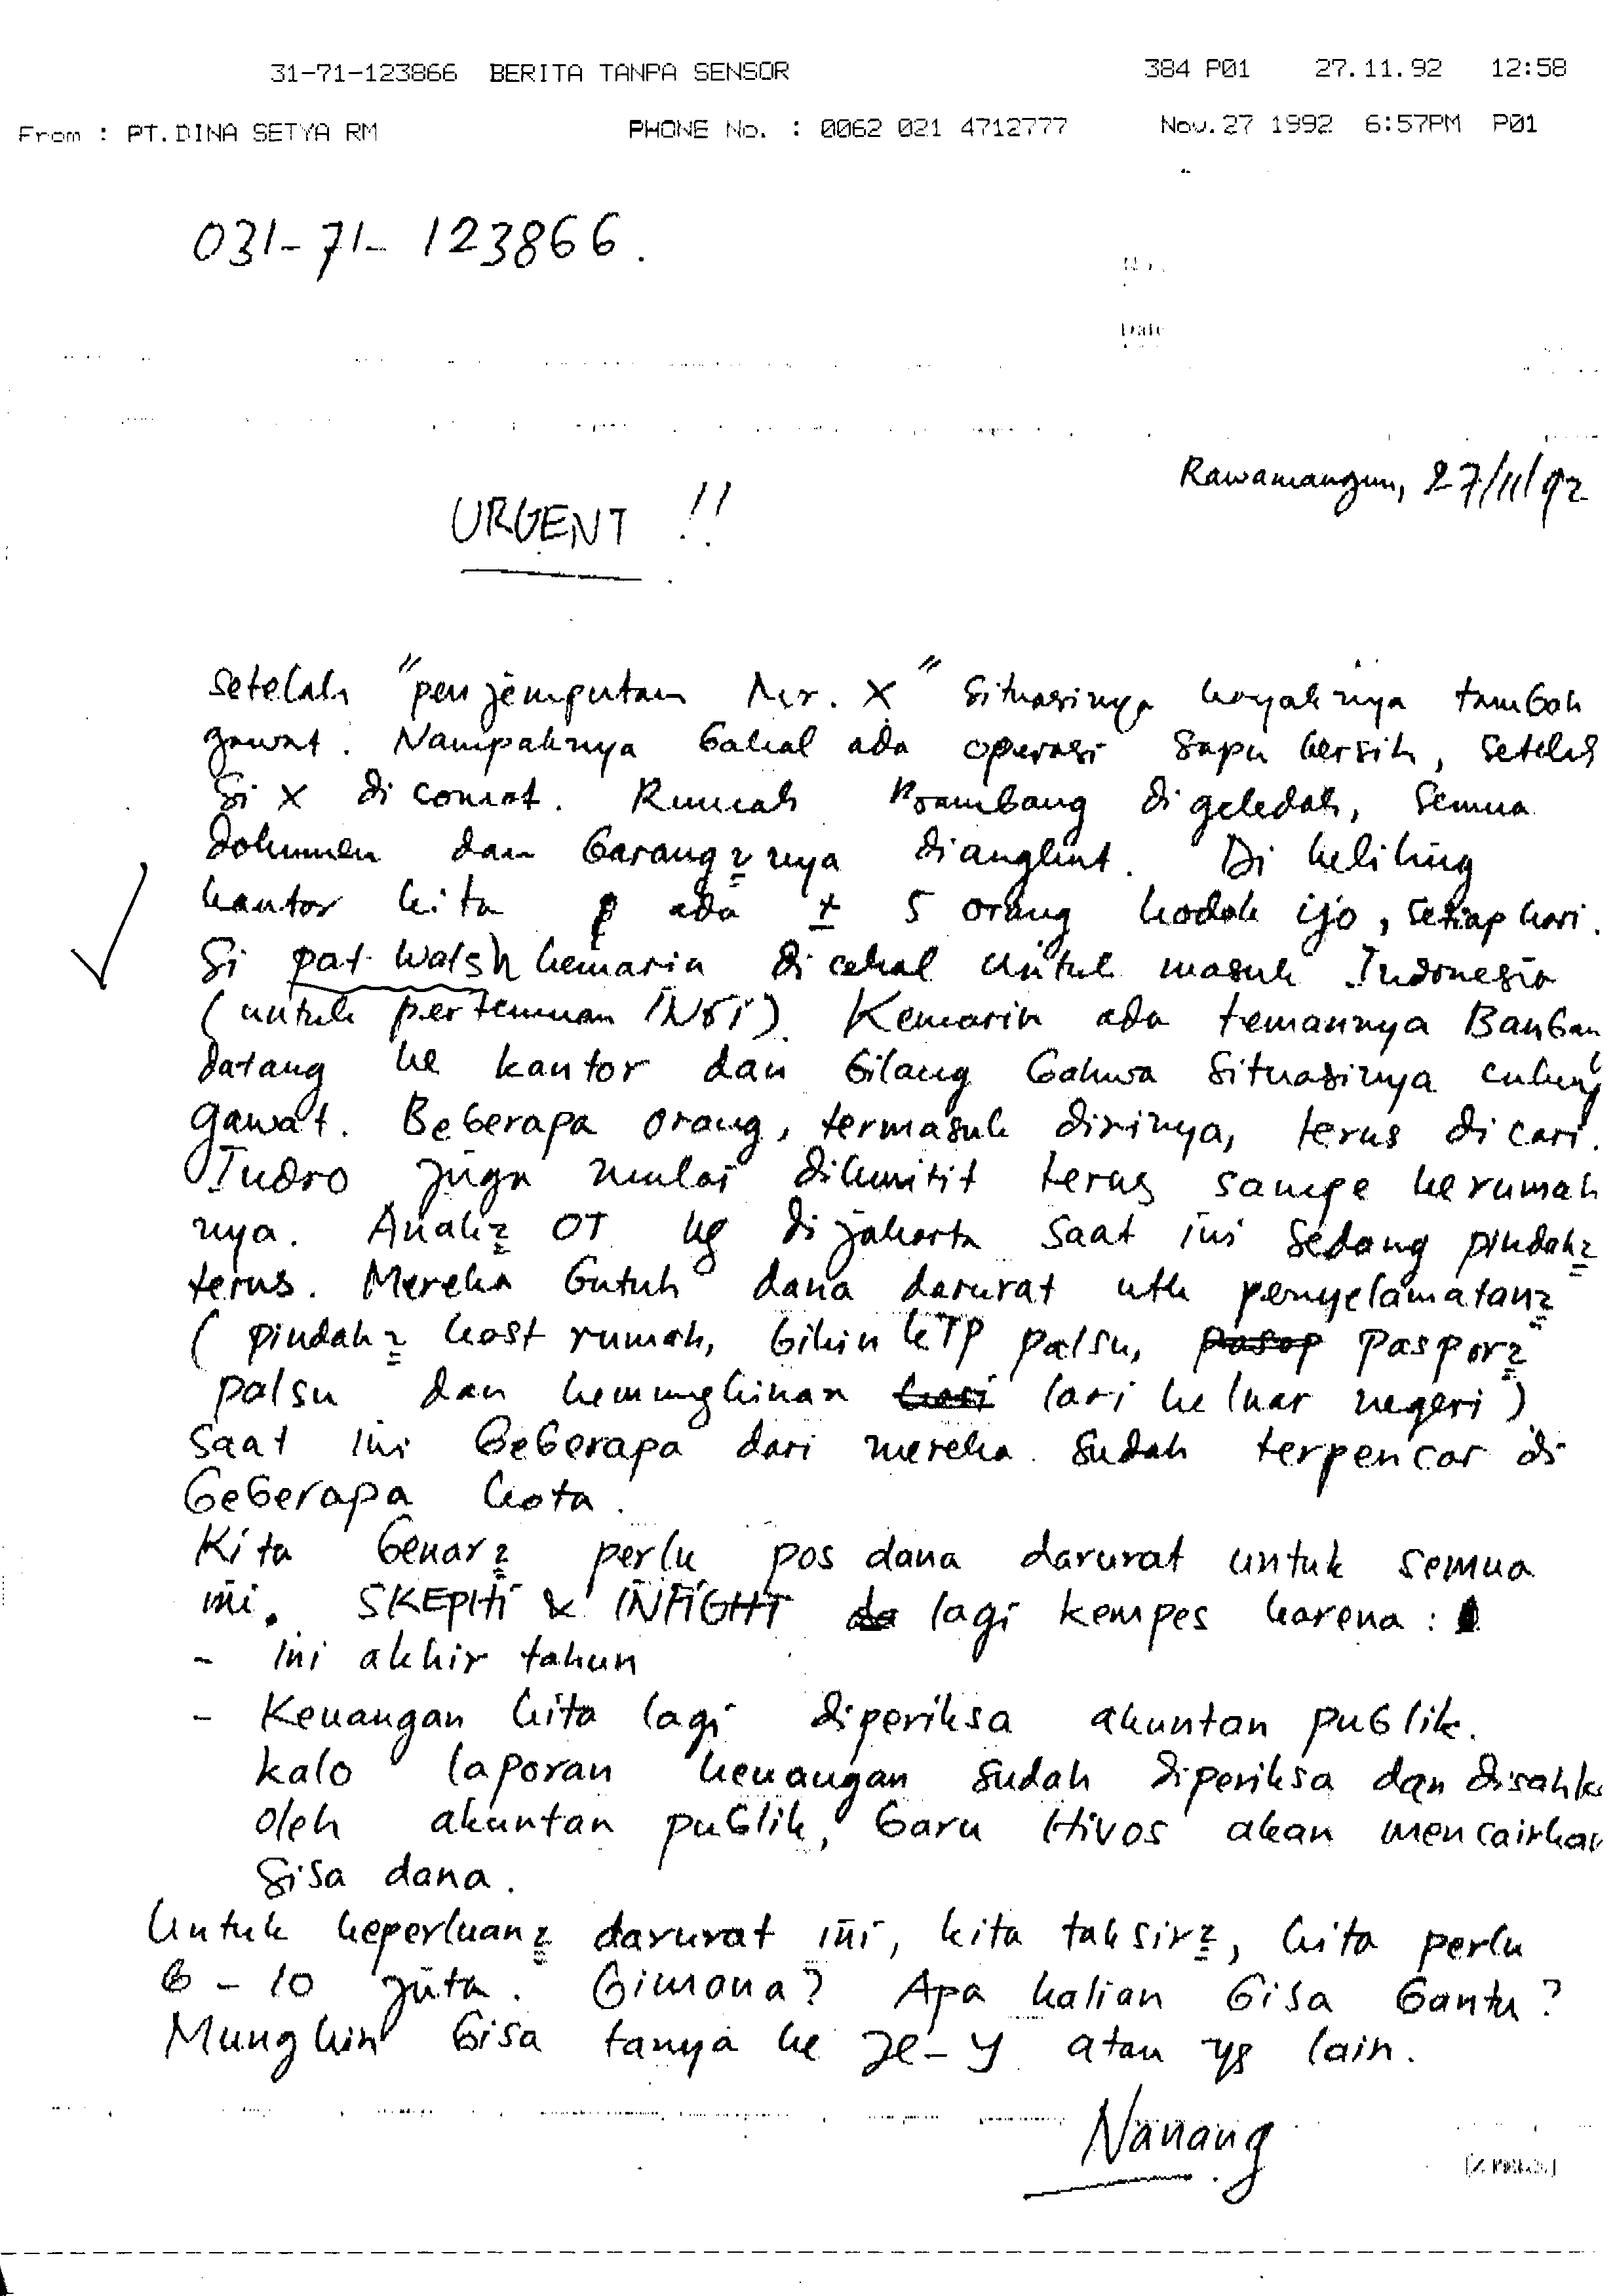 31-71-123866 BERITA TANPA SENSOR 384 P01 27.11.92 12:58
From : PT.DINA SETYA RM PHONE No. : 0062 021 4712777 Nov.27 1992 6:57PM P01
031-71-123866.
No.
Date
Rawamangun, 27/11/92
URGENT !!
Setelah "penjemputan Mr. X" situasinya kayaknya tambah
gawat. Nampaknya bakal ada operasi sapu bersih, setelah
si X dicomot. Rumah Bambang digeledah, semua
dokumen dan barang2nya diangkut. Di keliling
kantor kita ada ± 5 orang kodok ijo, setiap hari.
Si Pat Walsh kemarin dicekal untuk masuk Indonesia
(untuk pertemuan INGI). Kemarin ada temannya Bamban
datang ke kantor dan bilang bahwa situasinya cukup
gawat. Beberapa orang, termasuk dirinya, terus dicari.
Indro juga mulai dikuntit terus sampe kerumah
nya. Anak2 OT yg dijakarta saat ini sedang pindah2
terus. Mereka butuh dana darurat utk penyelamatan2
(pindah2 kost rumah, bikin KTP palsu, pasop paspor2
palsu dan kemungkinan lari keluar negeri)
Saat ini beberapa dari mereka sudah terpencar di
beberapa kota.
Kita benar2 perlu pos dana darurat untuk semua
ini. SKEPHI & INFIGHT da lagi kempes karena :
- ini akhir tahun
- Keuangan kita lagi diperiksa akuntan publik.
kalo laporan keuangan sudah diperiksa dan disahk
oleh akuntan publik, baru Hivos akan mencairkan
sisa dana.
Untuk keperluan2 darurat ini, kita taksir2, kita perlu
6 - 10 juta. Gimana? Apa kalian bisa bantu?
Mungkin bisa tanya ke Je-Y atau yg lain.
Nanang